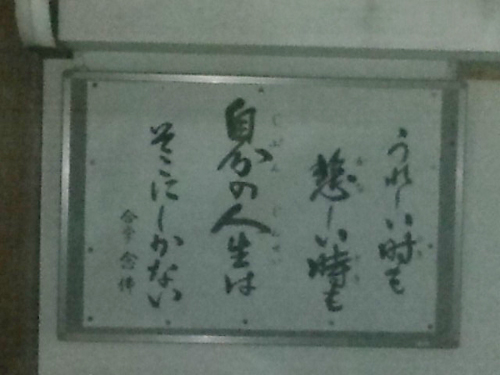 うれしい時も
悲しい時も
自分の人生は
そこにしかない
合掌 念佛